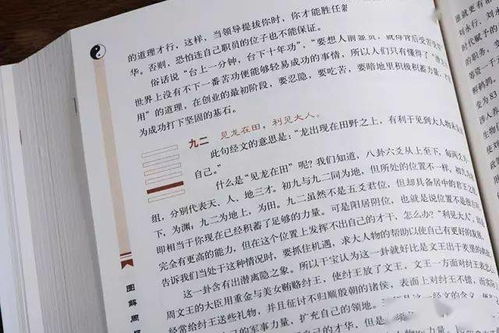 的道理才行，这样，当领导提拔你时，你才能胜任新
华。否则，恐怕连自己职员的位子也不能保证。
俗话说“台上一分钟，台下十年功”，“要想人前显贵，就得背后受苦
世界上没有不下一番苦功便能够轻易成功的事情，所以人们只有懂得了“潜龙
用”的道理，在创业的最初阶段，要忍隐，要吃苦，要暗地里积极积蓄力量，
为成功打下坚固的基石。
九二 见龙在田，利见大人。
此句经文的意思是：“龙出现在田野之上，有利于见到大人物
自己。”
什么是“见龙在田”呢？我们知道，八卦六爻从上至下，每两爻为
组，分别代表天、人、地三才。初九与九二同为地，但所处的位置不一样，初九为
下，为渊，九二为地上，为田。九二虽然不是五爻君位，但却具备居中的君王之
即相当于你现在已经积蓄了足够的力量。可是阳居阴位，也就是说位置不是
完全有更高的能力，但在这个位置上发挥不出自己的才干，怎么办？“利见大人”，就
告诉我们当处于这种情况时，要抓住机遇，求大人物的帮助以使自己有更好的发
这一卦含有出潜离隐之象。所以干宝认为这一卦就好比是文王出于羑里的
周文王的大臣用重金与美女贿赂纣王，使纣王放了文王。文王一方面对纣
经常给纣王送些礼物，并且征讨不归顺殷朝的诸侯，表面上对纣王不错，而
自己的军事力量，扩充自己的领地。
图解周易